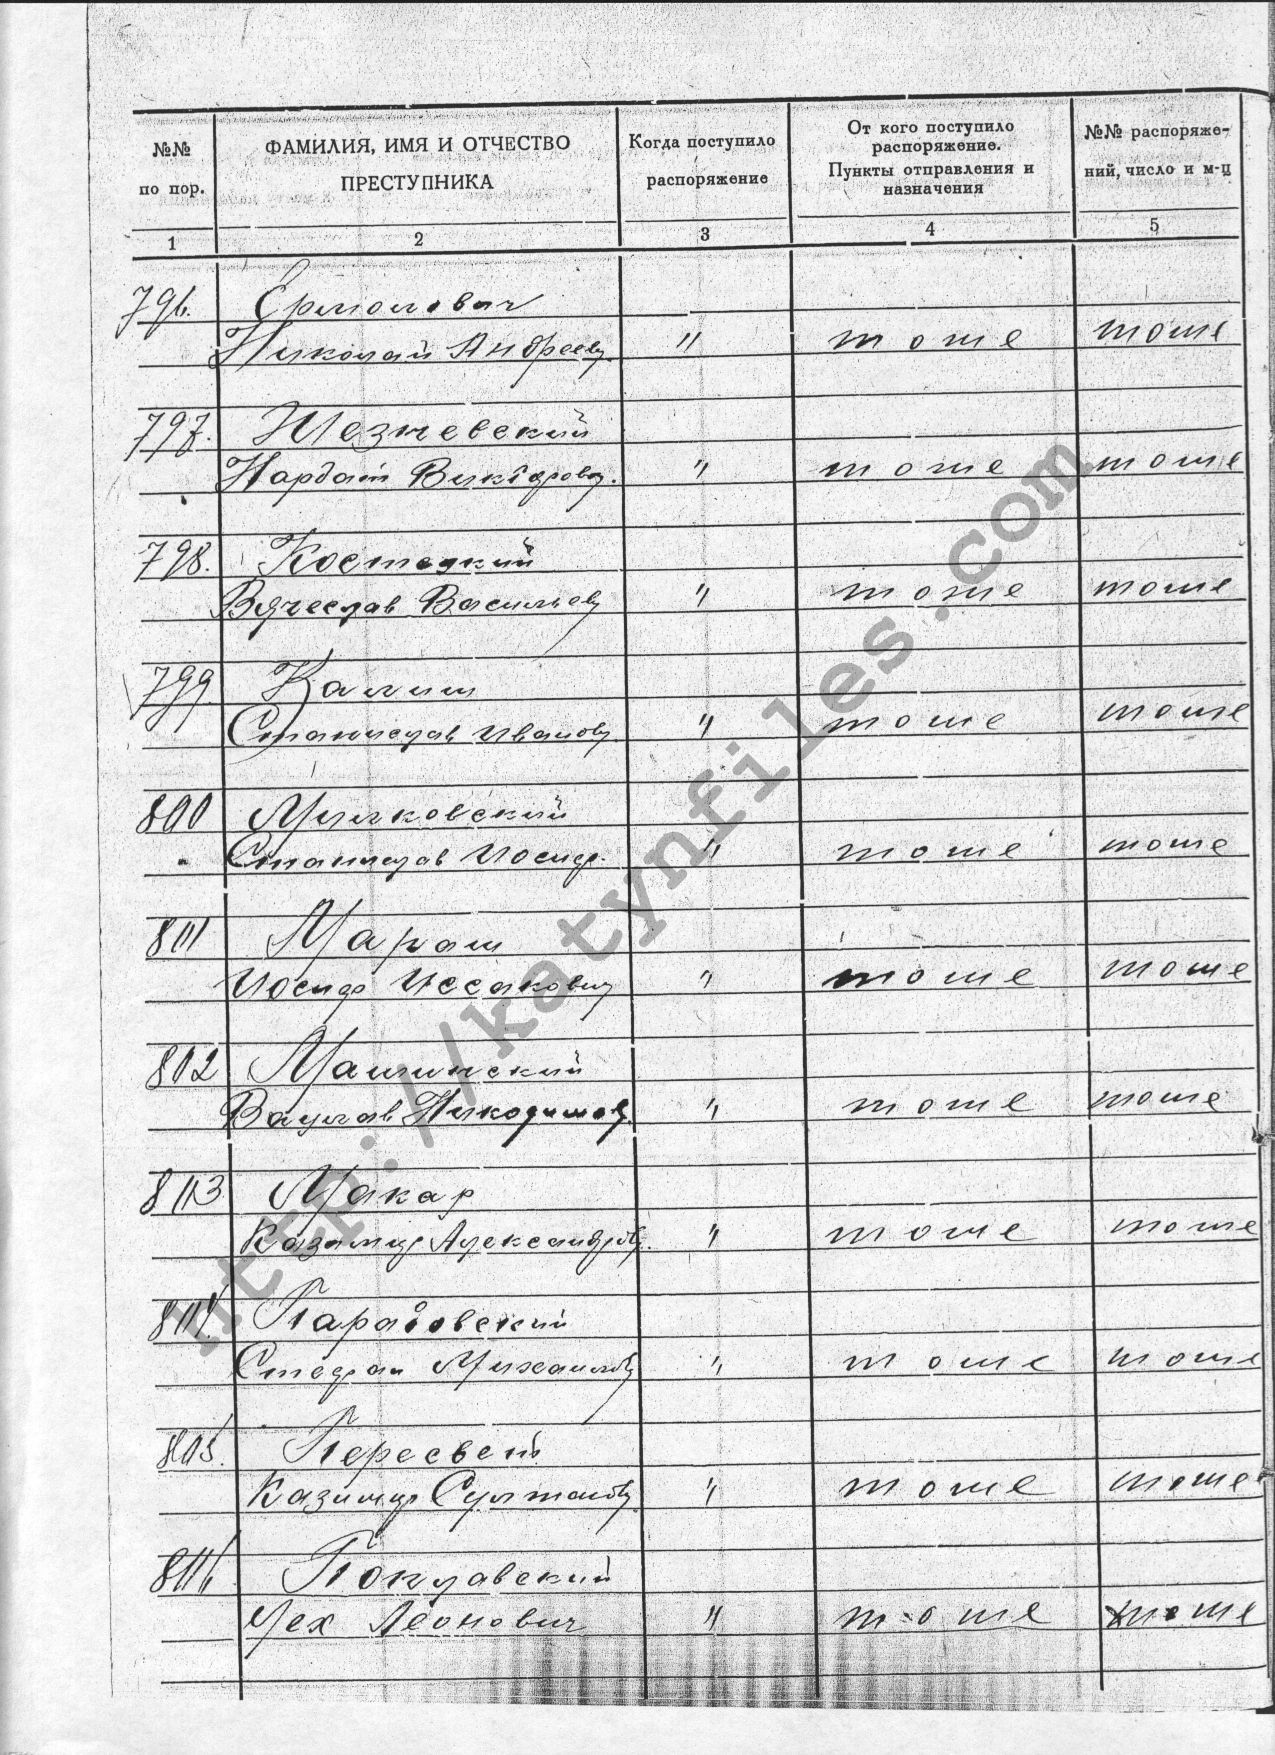 №№ по пор.
ФАМИЛИЯ, ИМЯ И ОТЧЕСТВО ПРЕСТУПНИКА
Когда поступило распоряжение
От кого поступило распоряжение. Пункты отправления и назначения
№№ распоряже-ний, число и м-ц
1 2 3 4 5
796. Ермолович
Николай Андреев. " тоже тоже
797.
" тоже тоже
798. Костецкий
Вячеслав Васильев " тоже тоже
799. Калиш
Станислав Иванов. " тоже тоже
800
Станислав Иосиф. " тоже тоже
801
Иосиф Иссакович " тоже тоже
802
Вацлав Никодимов. " тоже тоже
803 Макар
Казимир Александров. " тоже тоже
804.
Стефан Михайлов " тоже тоже
805. Пересвет
Казимир " тоже тоже
806
Чех Леонович " тоже тоже
http://katynfiles.com